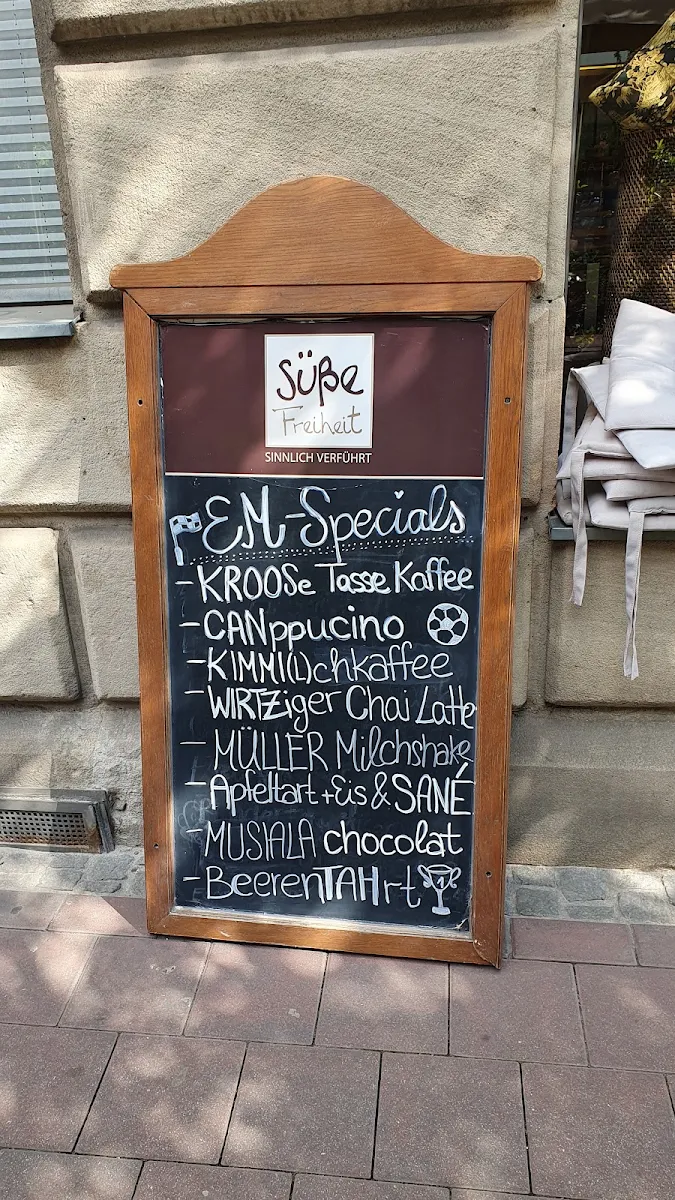 Süße
Freiheit
SINNLICH VERFÜHRT
EM-Specials
- KROOSe Tasse Kaffee
- CANppucino
- KIMMI(L)chkaffee
- WIRTZiger Chai Latte
- MÜLLER Milchshake
- Apfeltart + Eis & SANÉ
- MUSIALA chocolat
- BeerenTAHrt
1